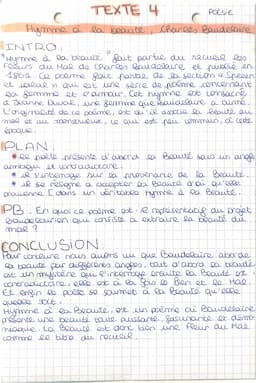 TEXTE 4
POÉSIE
Hymne à la beauté, Charles Baudelaire
INTRO:
"Hymne à la beauté" fait partie du recueil les
Fleurs du Mal de Charles Baudelaire et publié en
Ce poème fait partie de la section "Spleen
et idéal" qui est une série de poème concernant
la femme et l'amour. Cet hymne est consacré
à Jeanne Duval, une femme que Baudelaire a aimé.
L'originalité de ce poème, est qu'il associe la Beauté au
mal et au monstrueux, ce qui est peu commun, à cette
époque.
PLAN:
Le poète présente d'abord la Beauté sous un angle
ambigu et contradictoire.
Il s'interroge sur la provenance de la Beauté.
Il se résigne à accepter la Beauté d'où qu'elle
provienne (dans un véritable hymne à la Beauté.
PB: En quoi ce poème est-il représentatif du projet
baudelairien qui consiste à extraire la beauté du
mal ?
CONCLUSION:
Pour conclure nous avons vu que Baudelaire aborde
la beauté par différents angles, tout d'abord la beauté
est un mystère qui s'interroge ensuite la Beauté est
contradictoire, elle est à la fois le Bien et le Mal.
Et enfin le poète se soumet à la Beauté qu'elle
quelle soit.
Hymne à la Beauté, est un poème où Baudelaire
présente une beauté aussi puissante, fascinante et démo
niaque. La Beauté est donc bien une Fleur du Mal
comme le titre du recueil.